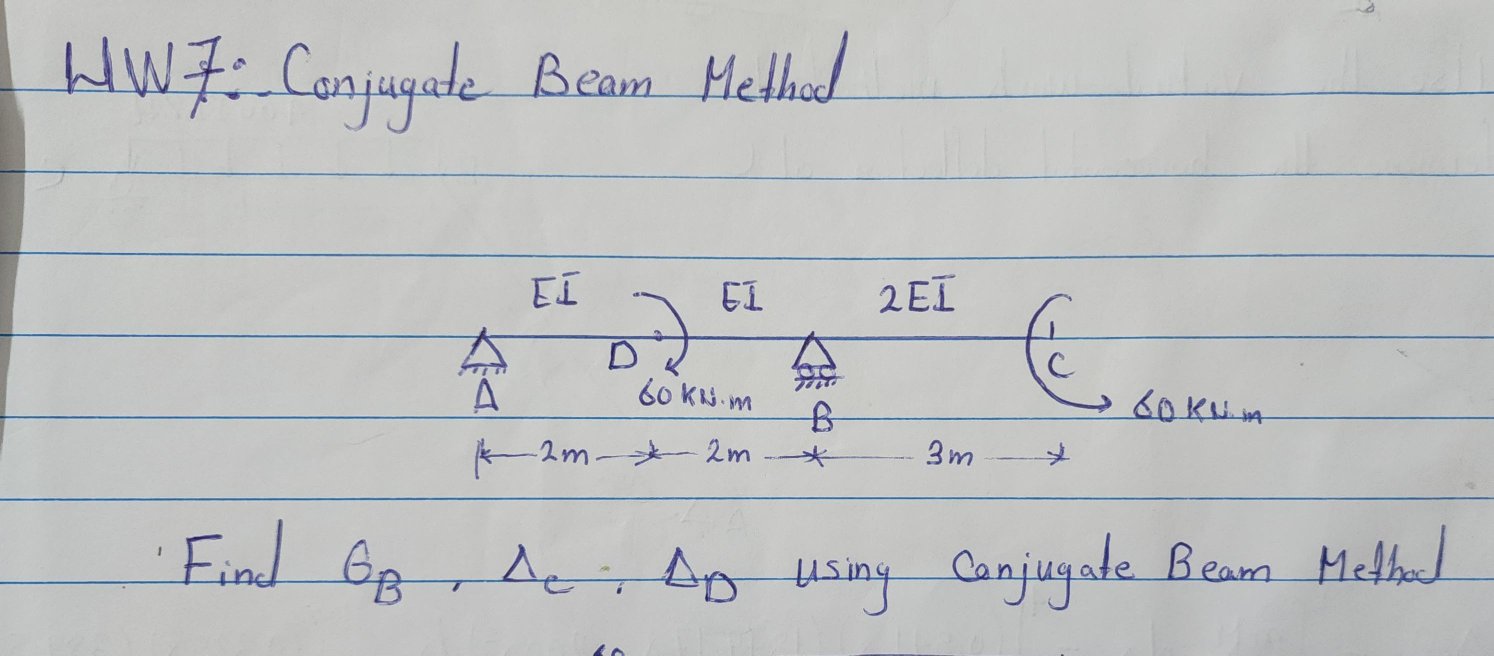 HW7: Conjugate Beam Method
EI EI 2EI
D C
60 KN.m
A B 60 KN.m
2m 2m 3m
Find θB , Δc , ΔD using Conjugate Beam Method